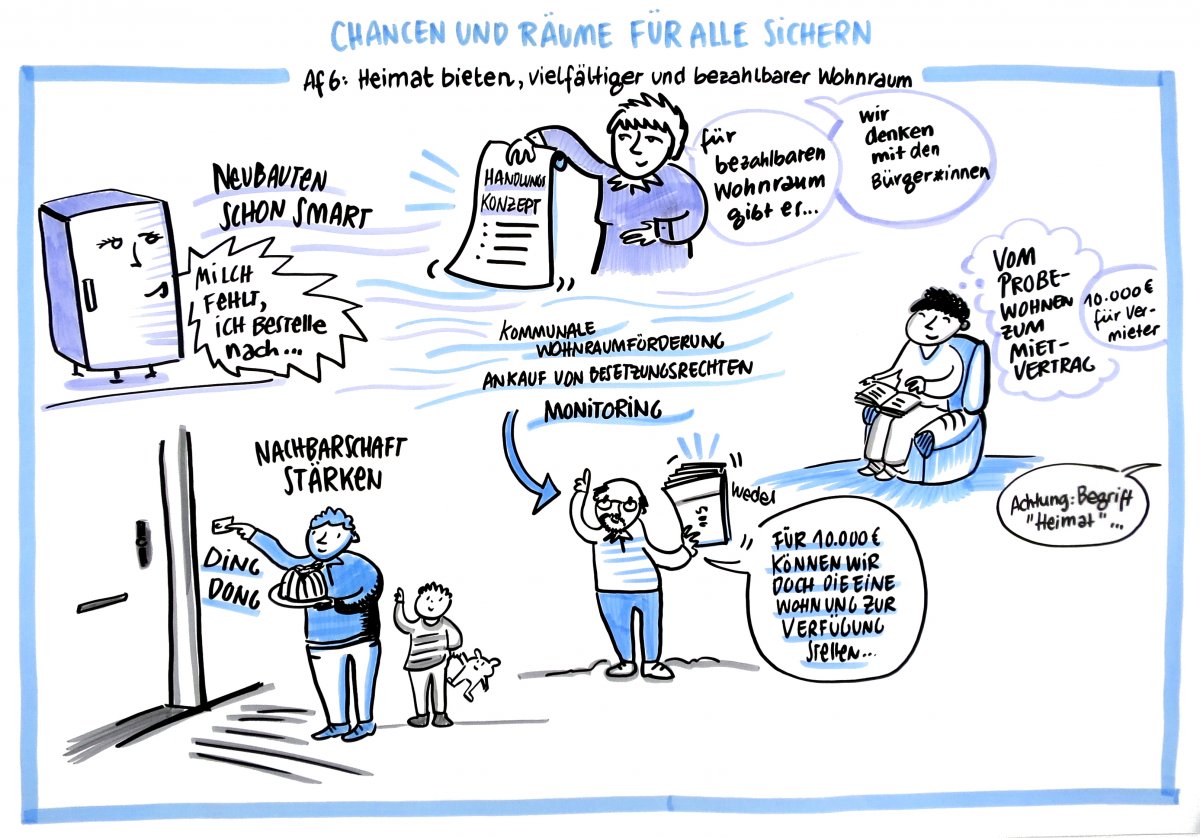 CHANCEN UND RÄUME FÜR ALLE SICHERN
Af6: Heimat bieten, vielfältiger und bezahlbarer Wohnraum
NEUBAUTEN
SCHON SMART
MILCH
FEHLT,
ICH BESTELLE
nach...
HANDLUNGS
KONZEPT
für
bezahlbaren
Wohnraum
gibt es...
wir
denken
mit den
Bürger*innen
KOMMUNALE
WOHNRAUMFÖRDERUNG
ANKAUF VON BESETZUNGSRECHTEN
MONITORING
VOM
PROBE-
WOHNEN
ZUM
MIET-
VERTRAG
10.000 €
für Ver-
mieter
Achtung: Begriff
"Heimat"...
NACHBARSCHAFT
STÄRKEN
DING
DONG
Wedel
FÜR 10.000 €
KÖNNEN WIR
DOCH DIE EINE
WOHNUNG ZUR
VERFÜGUNG
Stellen...